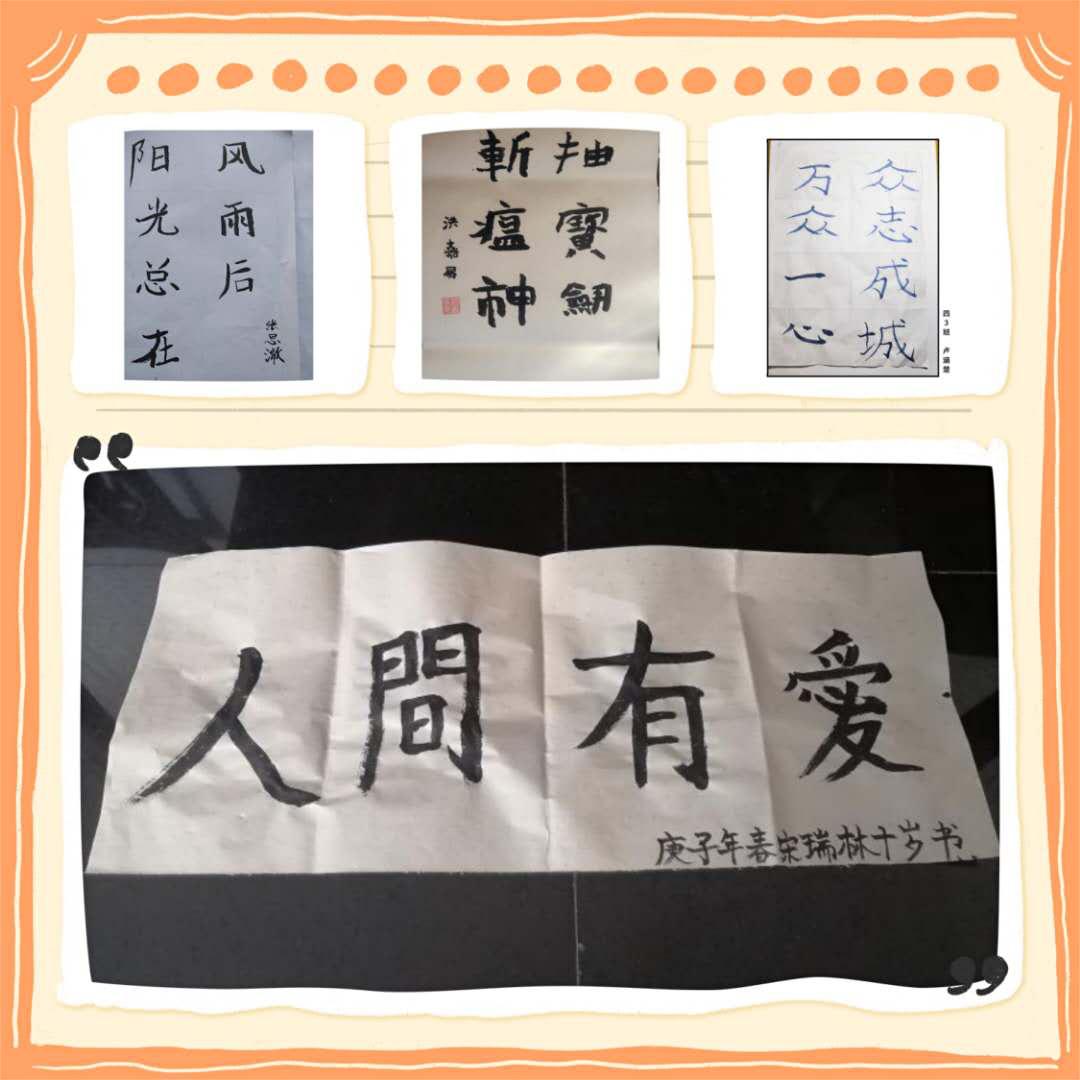 阳光总在
风雨后
抽寶劍
斬瘟神
众志成城
万众一心
四3班
人間有愛
庚子年春宋瑞林十岁书